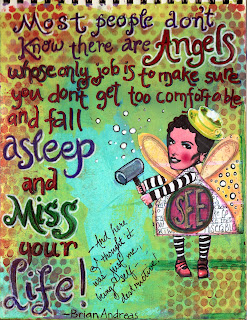 Most people don't
Know there are Angels
whose only job is to make sure
you don't get too comfortable
and fall
asleep
and
Miss
your
Life!
~Brian Andreas
And here
I thought it
was just me
being self
destructive!
SEE